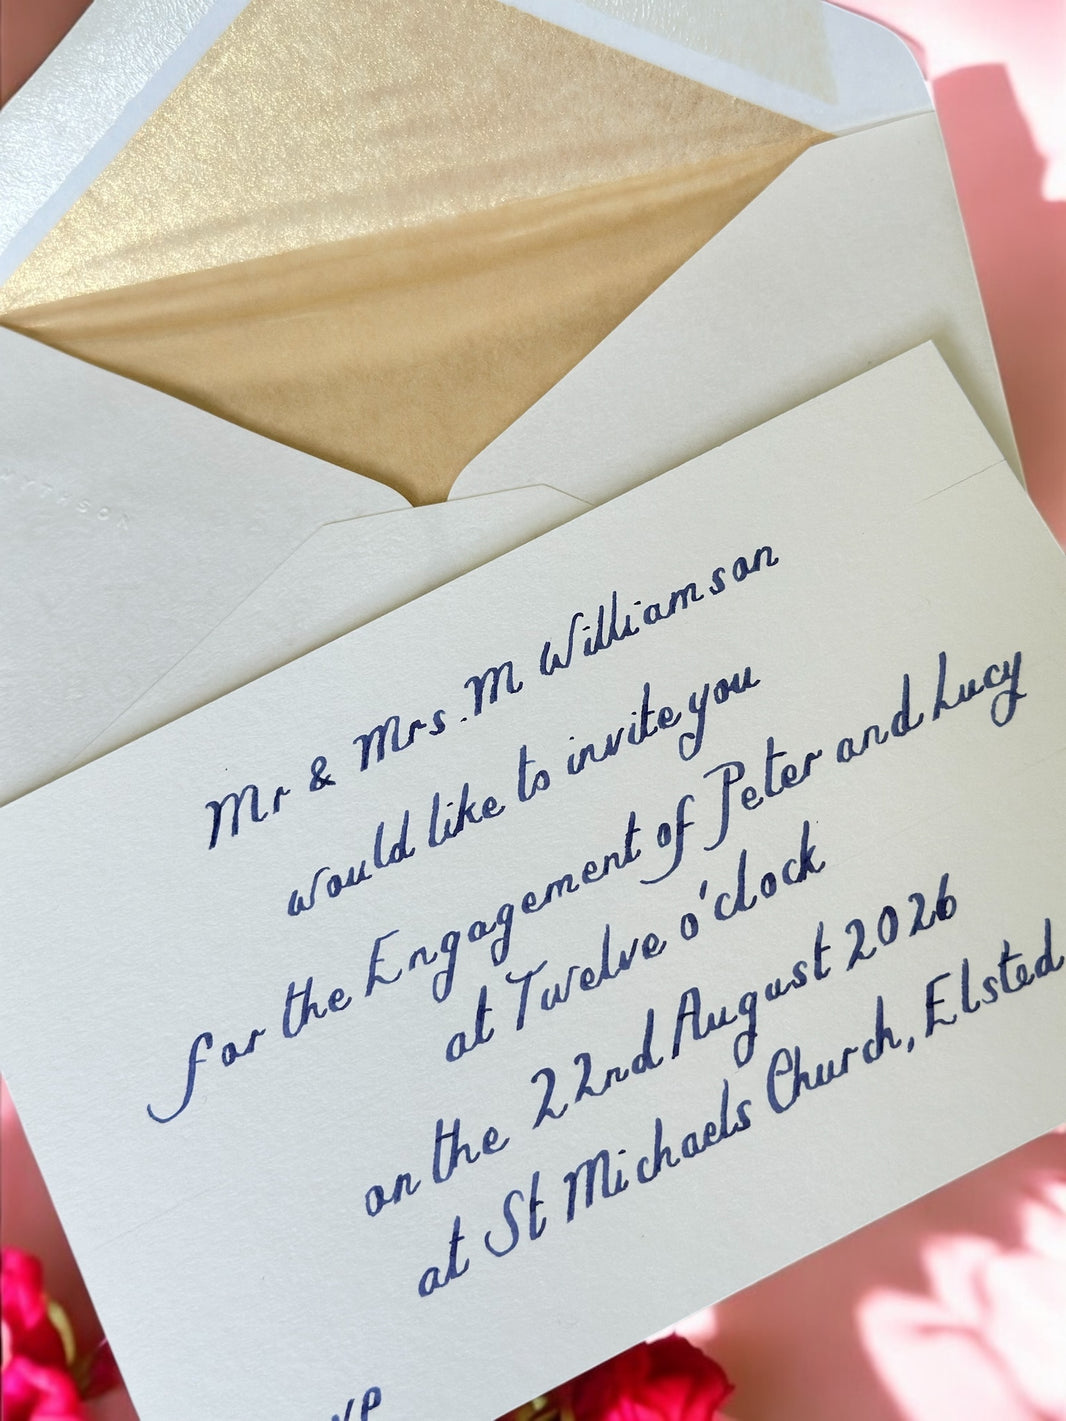 Mr & Mrs. M Williamson
would like to invite you
for the Engagement of Peter and Lucy
at Twelve o'clock
on the 22nd August 2026
at St Michaels Church, Elsted